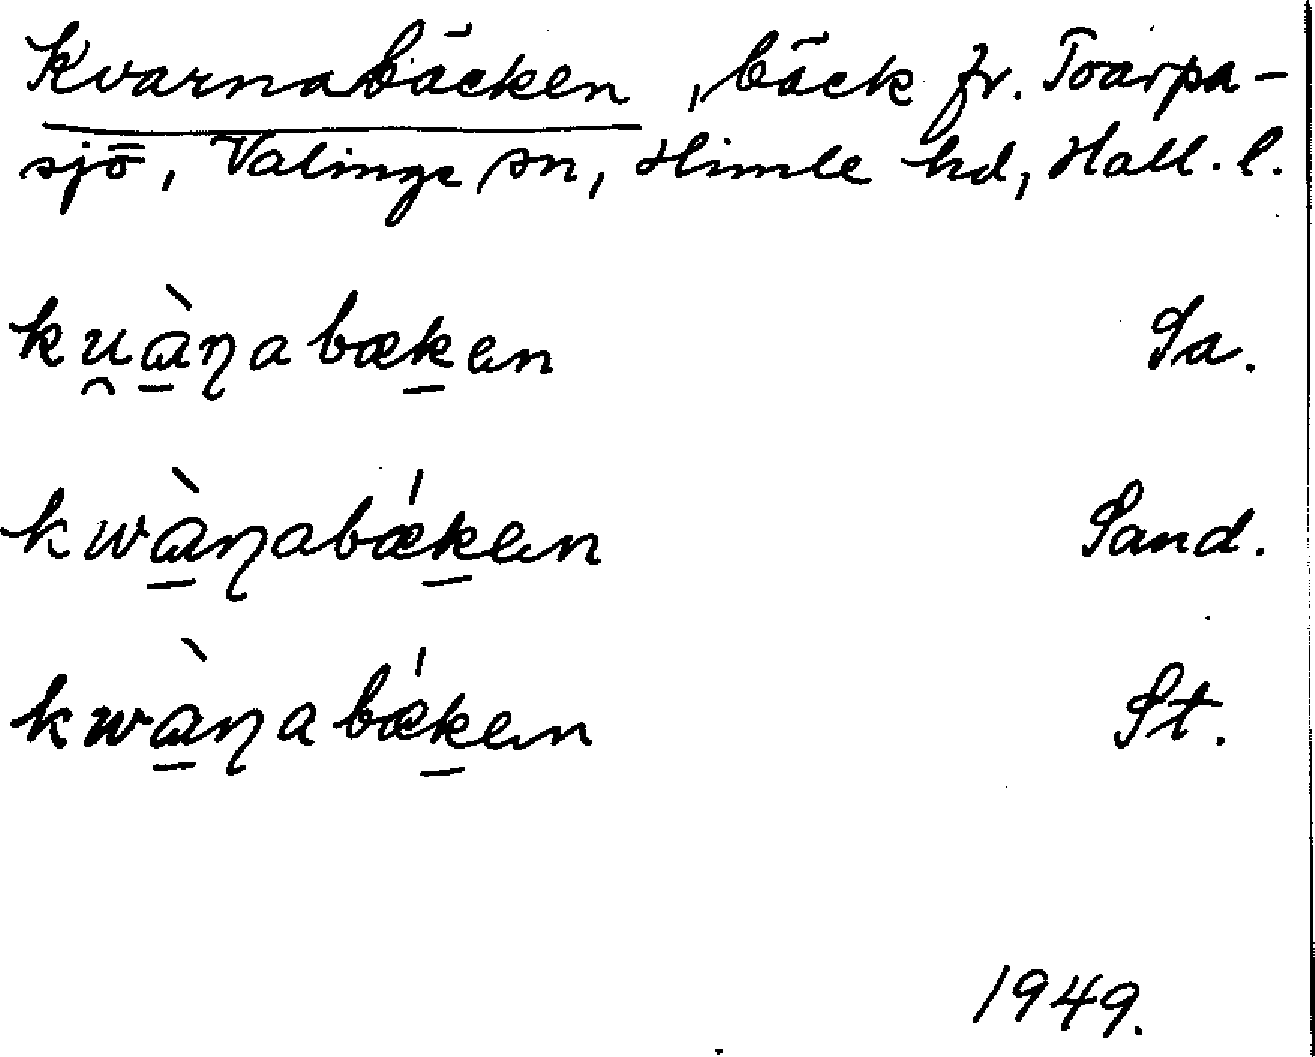 Kvarnabäcken, bäck fr. Toarpa-
sjö, Valinge sn, Himle hd, Hall. l.
ku̯ɑ̱̀ɳabæḵən Sa.
kwɑ̱̀ɳabǽḵən Sand.
kwɑ̱̀ɳabǽḵən St.
1949.